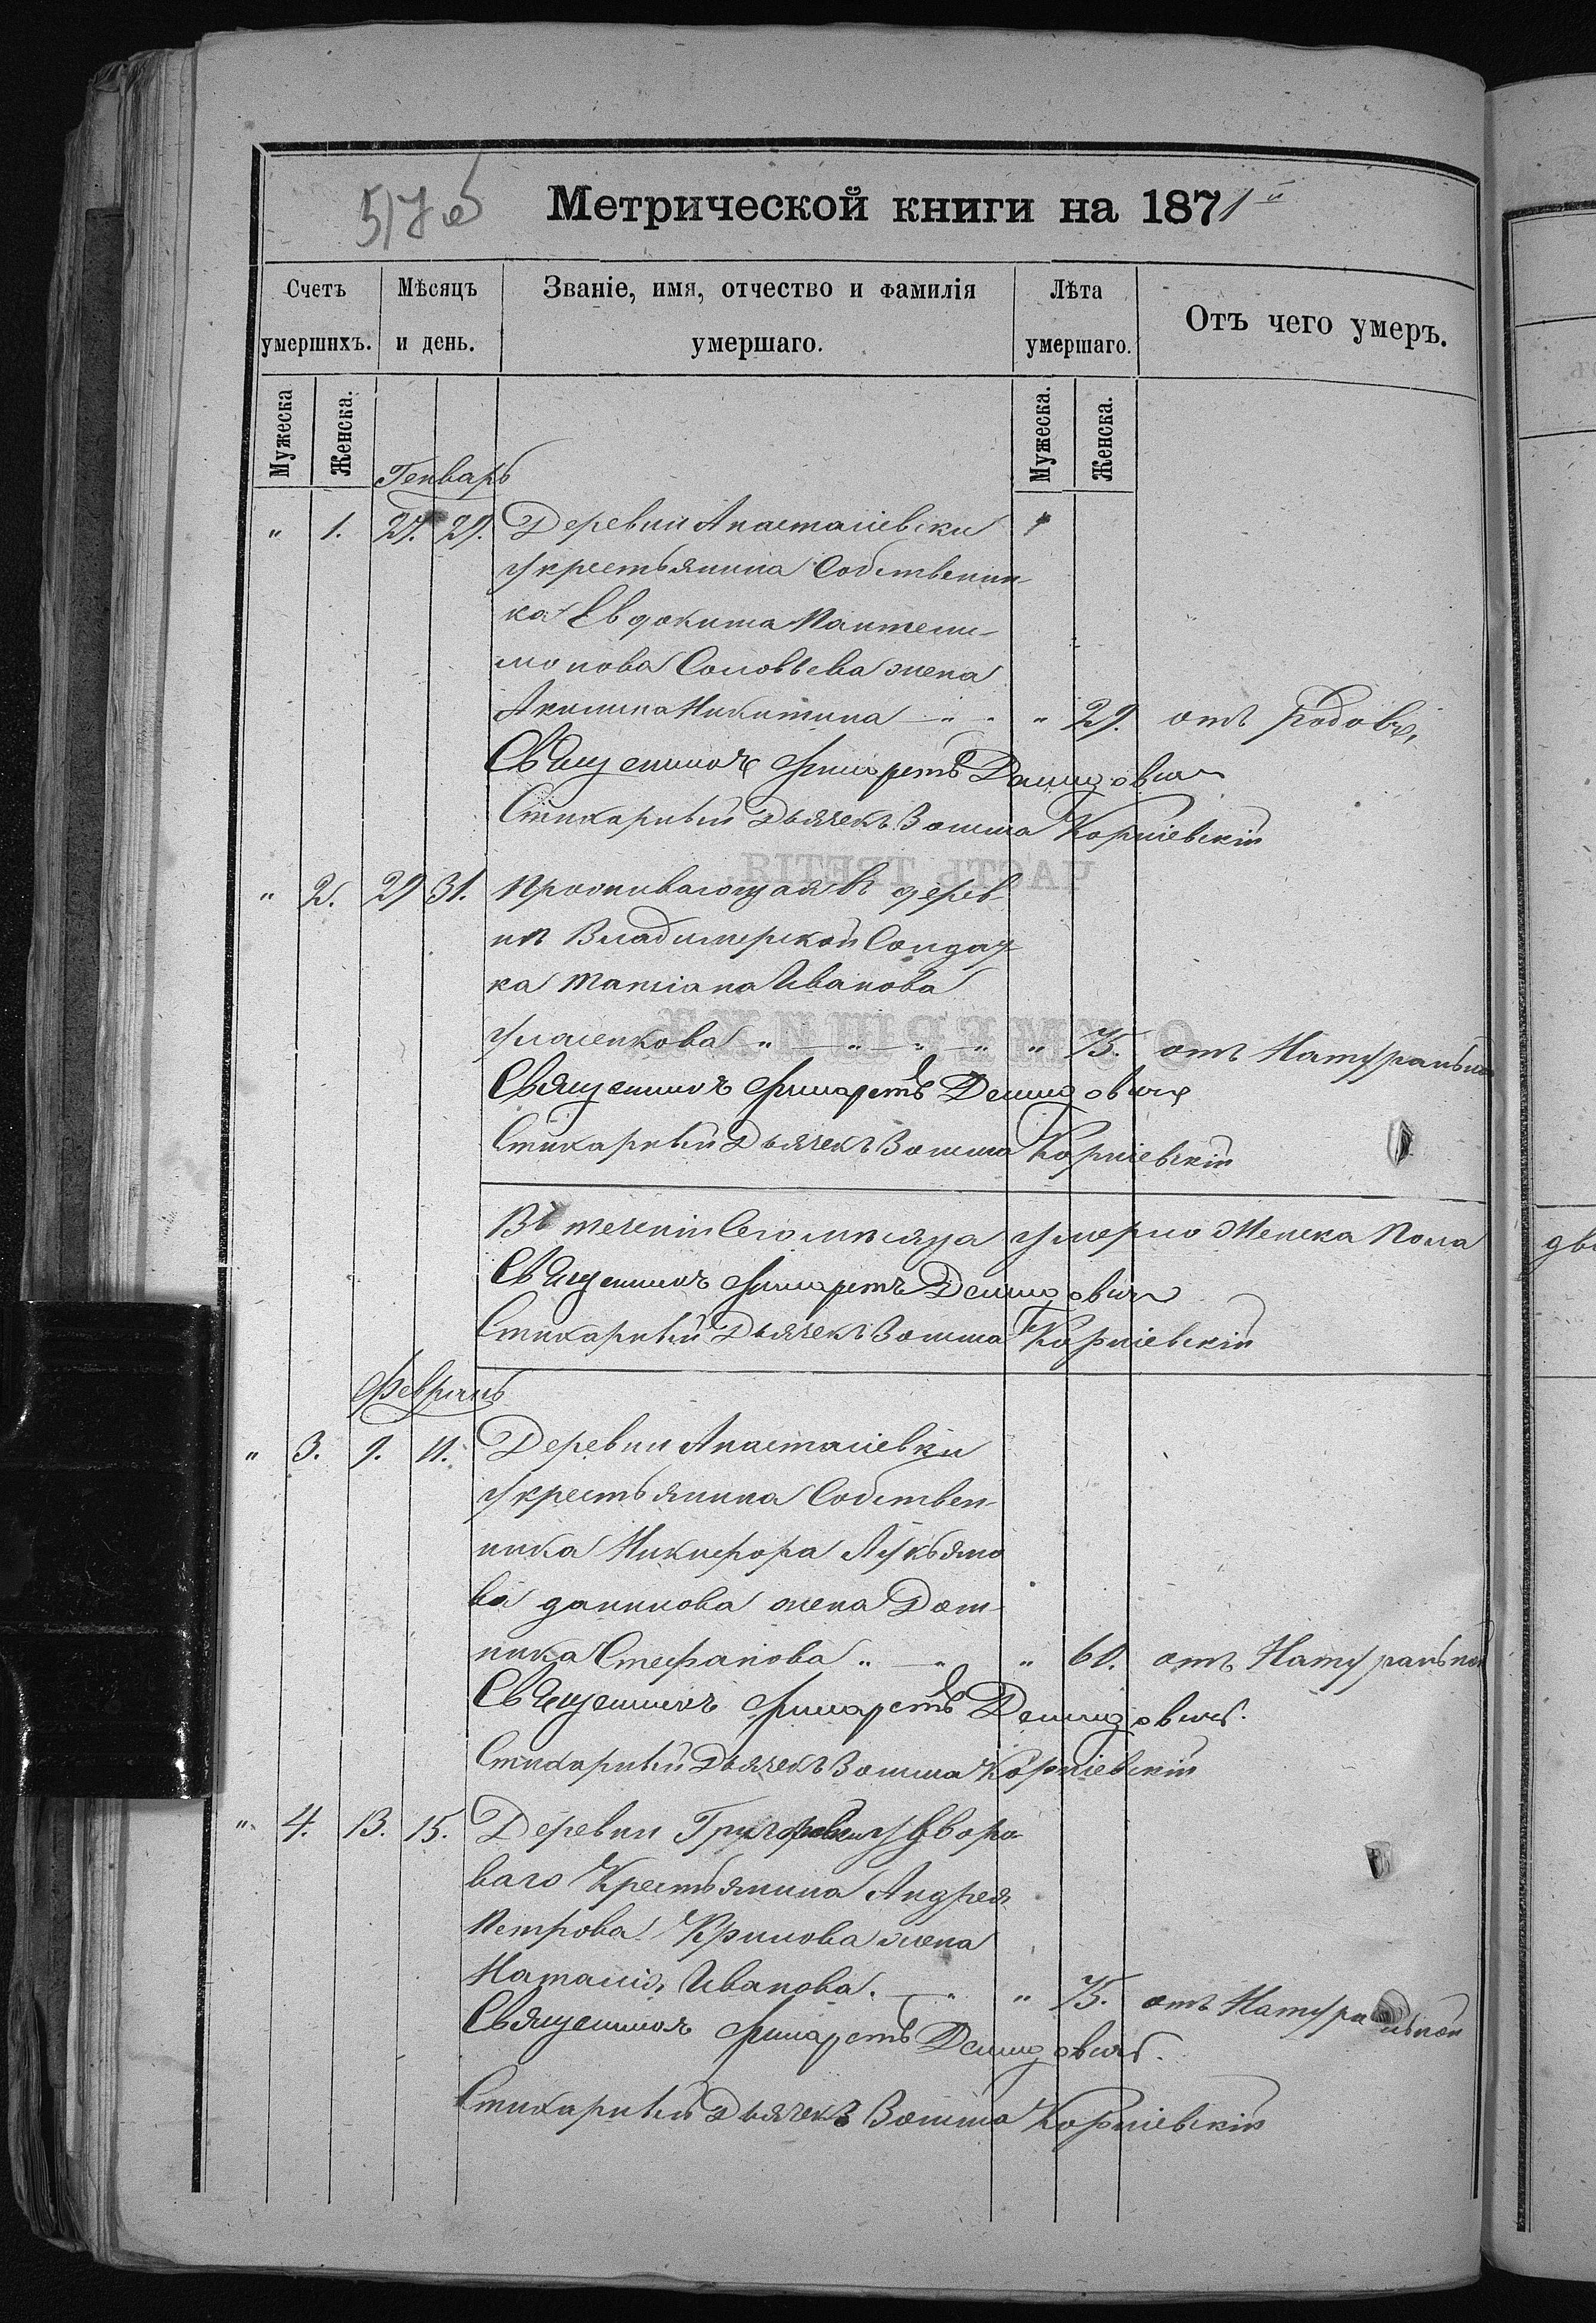 517 об
Метрической книги на 1871й
Счетъ умершихъ.
Мѣсяцъ и день.
Званіе, имя, отчество и фамилія умершаго.
Лѣта умершаго.
Отъ чего умеръ.
Мужеска
Женска.
Мужеска.
Женска.
Генварь
" 1. 27. 29. Деревни Анастасіевки
у крестьянина Собственни-
ка Евдокима Пантели-
монова Соловьева жена
Акилина Никитина " 29. отъ родовъ,
Священникъ Филаретъ Демидовичъ
Стихарный Дьячекъ Зосима Корніевскій
" 2. 29 31. Проживающая въ дерев-
нѣ Владимерской Солдат-
ка Татіана Иванова
" " " " 75. отъ Натуральной
Священникъ Филаретъ Демидовичъ
Стихарный Дьячекъ Зосима Корніевскій
Въ теченіи Сего мѣсяца умерло Женска Пола
Священникъ Филаретъ Демидовичъ
Стихарный Дьячекъ Зосима Корніевскій
Февраль
" 3. 9. 11. Деревни Анастасіевки
у крестьянина Собствен-
ника Никифора Лукьяно
ва данилова жена Дом-
ника Стефанова " " " 60. отъ Натуральной
Священникъ Филаретъ Демидовичъ.
Стихарный Дьячекъ Зосима Корніевскій
" 4. 13. 15. Деревни Григоровки у Дворо
ваго Крестьянина Андрея
Петрова Крилова жена
Наталія Иванова. " " 75. отъ Натуральной
Священникъ Филаретъ Демидовичъ.
Стихарный Дьячекъ Зосима Корніевскій